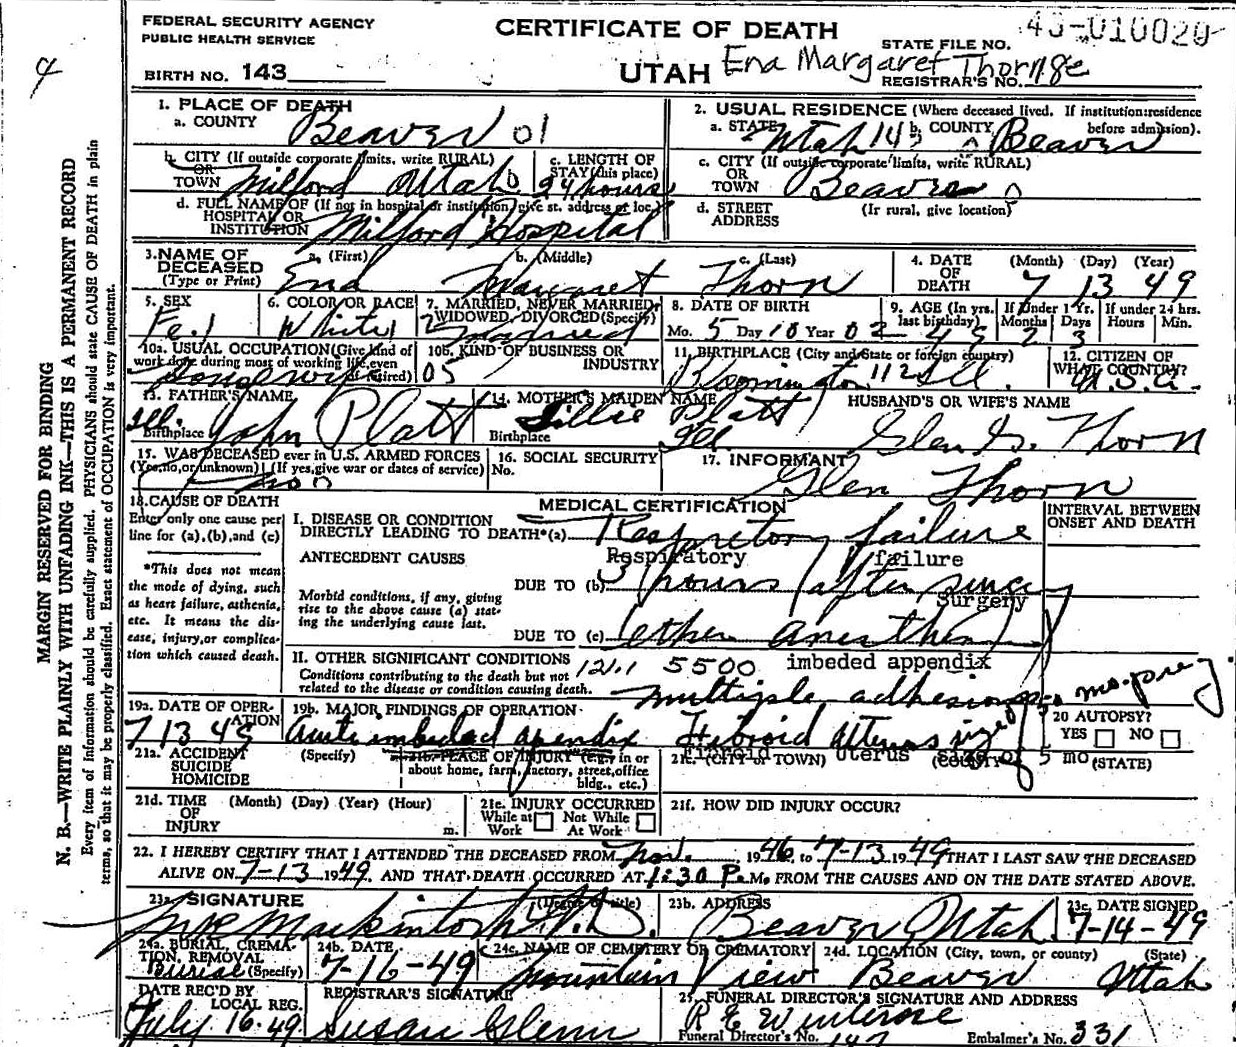 FEDERAL SECURITY AGENCY
PUBLIC HEALTH SERVICE
CERTIFICATE OF DEATH
STATE FILE NO.
BIRTH NO. 143
UTAH Ena Margaret Thorn
REGISTRAR'S NO. 18e
1. PLACE OF DEATH
a. COUNTY Beaver 01
2. USUAL RESIDENCE (Where deceased lived. If institution:residence before admission).
a. STATE Utah 143 b. COUNTY Beaver
b. CITY (If outside corporate limits, write RURAL) OR TOWN Milford Utah
c. LENGTH OF STAY (this place) 24 hours
c. CITY (If outside corporate limits, write RURAL) OR TOWN Beaver
d. FULL NAME OF (If not in hospital or institution, give st. address or loc.) HOSPITAL OR INSTITUTION Milford Hospital
d. STREET ADDRESS (Ir rural, give location)
3. NAME OF DECEASED (Type or Print)
a. (First) Ena b. (Middle) Margaret c. (Last) Thorn
4. DATE OF DEATH (Month) (Day) (Year) 7 13 49
5. SEX Fe.
6. COLOR OR RACE White
7. MARRIED, NEVER MARRIED, WIDOWED, DIVORCED(Specify) Married
8. DATE OF BIRTH Mo. 5 Day 10 Year 02
9. AGE (In yrs. last birthday)
If Under 1 Yr. Months Days 2 3
If under 24 hrs. Hours Min.
10a. USUAL OCCUPATION(Give kind of work done during most of working life, even if retired) Housewife
10b. KIND OF BUSINESS OR INDUSTRY 05
11. BIRTHPLACE (City and State or foreign country) Bloomington 112 Ill.
12. CITIZEN OF WHAT COUNTRY? U.S.A.
13. FATHER'S NAME John Platt
Birthplace Ill.
14. MOTHER'S MAIDEN NAME Lillie Platt
Birthplace Ill
HUSBAND'S OR WIFE'S NAME
Glen G. Thorn
15. WAS DECEASED ever in U.S. ARMED FORCES (Yes,no,or unknown) (If yes,give war or dates of service)
16. SOCIAL SECURITY No.
17. INFORMANT Glen Thorn
18. CAUSE OF DEATH
Enter only one cause per line for (a),(b),and (c)
*This does not mean the mode of dying, such as heart failure, asthenia, etc. It means the disease, injury,or complication which caused death.
MEDICAL CERTIFICATION
INTERVAL BETWEEN ONSET AND DEATH
I. DISEASE OR CONDITION DIRECTLY LEADING TO DEATH*(a) Respiretory failure
Respiratory failure
ANTECEDENT CAUSES
Morbid conditions, if any, giving rise to the above cause (a) stating the underlying cause last.
DUE TO (b) 5 hours after
Surgery
DUE TO (c) ether
II. OTHER SIGNIFICANT CONDITIONS 121.1 5500 imbeded appendix
Conditions contributing to the death but not related to the disease or condition causing death. multiple adhesions
5 mo. preg.
19a. DATE OF OPERATION 7 13 49
19b. MAJOR FINDINGS OF OPERATION
Acute imbeded apendix Fibroid uterus size of
Fibroid uterus size of 5 mo
20 AUTOPSY?
YES NO
21a. ACCIDENT SUICIDE HOMICIDE (Specify)
21b. PLACE OF INJURY (e.g., in or about home, farm, factory, street,office bldg., etc.)
21c. (CITY or TOWN) (COUNTY) (STATE)
21d. TIME OF INJURY (Month) (Day) (Year) (Hour) m.
21e. INJURY OCCURRED
While at Work Not While At Work
21f. HOW DID INJURY OCCUR?
22. I HEREBY CERTIFY THAT I ATTENDED THE DECEASED FROM Nov. 1946, to 7-13 1949 THAT I LAST SAW THE DECEASED
ALIVE ON 7-13 1949, AND THAT DEATH OCCURRED AT 1:30 P.M. FROM THE CAUSES AND ON THE DATE STATED ABOVE.
23a. SIGNATURE (Degree or title)
Mackintosh
23b. ADDRESS Beaver Utah.
23c. DATE SIGNED 7-14-49
24a. BURIAL, CREMATION, REMOVAL (Specify) Burial
24b. DATE 7-16-49
24c. NAME OF CEMETERY OR CREMATORY Mountain View
24d. LOCATION (City, town, or county) (State) Beaver Utah
DATE REC'D BY LOCAL REG. July 16-49
REGISTRAR'S SIGNATURE Susan Glenn
25. FUNERAL DIRECTOR'S SIGNATURE AND ADDRESS
Funeral Director's No. 147 Embalmer's No. 331
MARGIN RESERVED FOR BINDING
N. B.—WRITE PLAINLY WITH UNFADING INK—THIS IS A PERMANENT RECORD
Every item of information should be carefully supplied. PHYSICIANS should state CAUSE OF DEATH in plain
terms, so that it may be properly classified. Exact statement of OCCUPATION is very important.